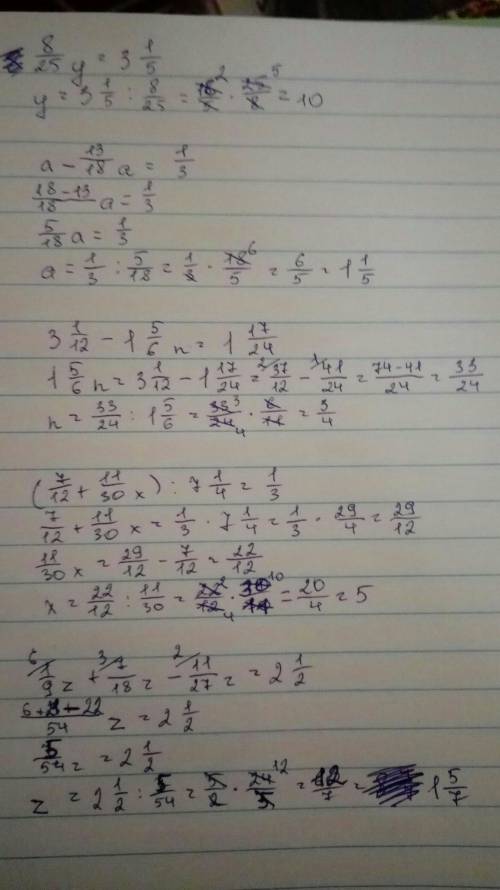 8/25 y = 3 1/5
y = 3 1/5 : 8/25 = 16²/5 · 25⁵/8 = 10
a - 13/18 a = 1/3
18-13/18 a = 1/3
5/18 a = 1/3
a = 1/3 : 5/18 = 1/3 · 18⁶/5 = 6/5 = 1 1/5
3 1/12 - 1 5/6 n = 1 17/24
1 5/6 n = 3 1/12 - 1 17/24 = ²37/12 - ¹41/24 = 74-41/24 = 33/24
n = 33/24 : 1 5/6 = 33³/24₄ · 6/11 = 3/4
(7/12 + 11/30 x) : 7 1/4 = 1/3
7/12 + 11/30 x = 1/3 · 7 1/4 = 1/3 · 29/4 = 29/12
11/30 x = 29/12 - 7/12 = 22/12
x = 22/12 : 11/30 = 22²/12₄ · 30¹⁰/11 = 20/4 = 5
⁶1/9 z + ³7/18 z - ²11/27 z = 2 1/2
6+21-22/54 z = 2 1/2
5/54 z = 2 1/2
z = 2 1/2 : 5/54 = 5/2 · = 12/7 = 1 5/7